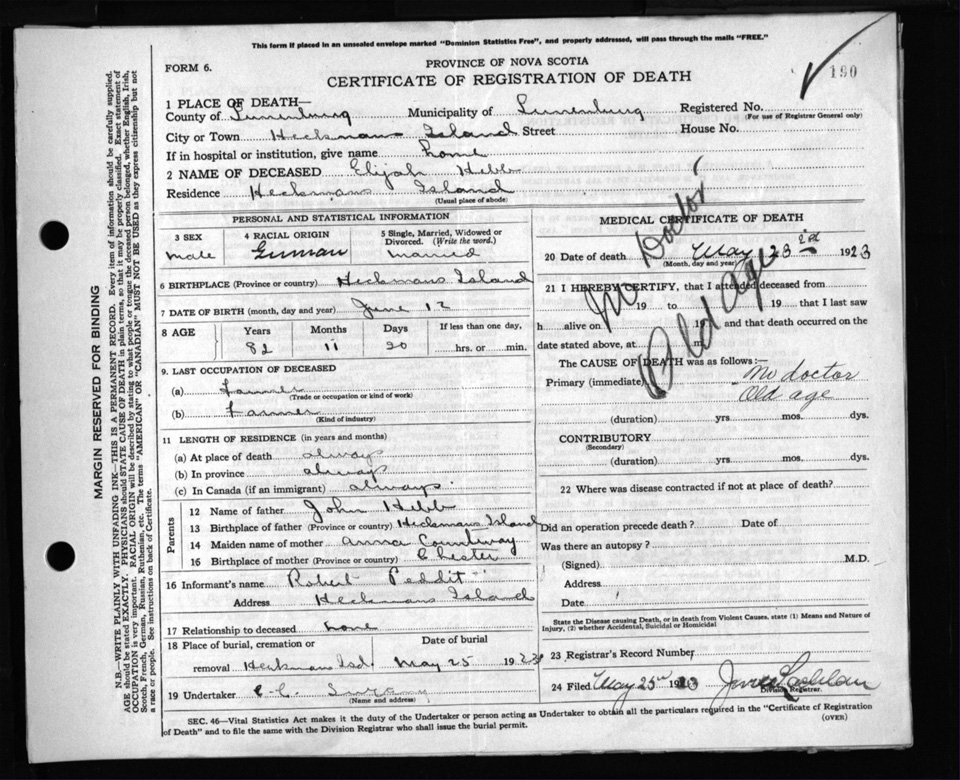 This form if placed in an unsealed envelope marked "Dominion Statistics Free", and properly addressed, will pass through the mails "FREE."
FORM 6.
PROVINCE OF NOVA SCOTIA
CERTIFICATE OF REGISTRATION OF DEATH
190
1 PLACE OF DEATH—
County of Lunenburg Municipality of Lunenburg Registered No.
(For use of Registrar General only)
City or Town Heckmans Island Street House No.
If in hospital or institution, give name home
2 NAME OF DECEASED Elijah Hebb
Residence Heckmans Island
(Usual place of abode)
PERSONAL AND STATISTICAL INFORMATION
3 SEX
male
4 RACIAL ORIGIN
German
5 Single, Married, Widowed or Divorced. (Write the word.)
married
6 BIRTHPLACE (Province or country) Heckmans Island
7 DATE OF BIRTH (month, day and year) June 12
8 AGE Years Months Days If less than one day,
82 11 20 hrs. or min.
9. LAST OCCUPATION OF DECEASED
(a) Farmer
(Trade or occupation or kind of work)
(b) Farmer
(Kind of industry)
11 LENGTH OF RESIDENCE (in years and months)
(a) At place of death always
(b) In province always
(c) In Canada (if an immigrant) always
Parents
12 Name of father John Hebb
13 Birthplace of father (Province or country) Heckmans Island
14 Maiden name of mother Anna Countway
15 Birthplace of mother (Province or country) Chester
16 Informant's name Robert Peddit
Address Heckmans Island
17 Relationship to deceased none
18 Place of burial, cremation or removal Heckmans Isd.
Date of burial
May 25 1923
19 Undertaker C. C.
(Name and address)
MEDICAL CERTIFICATE OF DEATH
20 Date of death May 23rd 1923
(Month, day and year)
21 I HEREBY CERTIFY, that I attended deceased from
19 to 19 that I last saw
h alive on 19 and that death occurred on the
date stated above, at m.
No Doctor
Old age
The CAUSE OF DEATH was as follows:—
Primary (immediate) No doctor
Old age
(duration) yrs. mos. dys.
CONTRIBUTORY
(Secondary)
(duration) yrs. mos. dys.
22 Where was disease contracted if not at place of death?
Did an operation precede death? Date of
Was there an autopsy?
(Signed) M.D.
Address
Date
State the Disease causing Death, or in death from Violent Causes, state (1) Means and Nature of Injury, (2) whether Accidental, Suicidal or Homicidal
23 Registrar's Record Number
24 Filed May 25rd 1923
Division Registrar.
SEC. 46—Vital Statistics Act makes it the duty of the Undertaker or person acting as Undertaker to obtain all the particulars required in the "Certificate of Registration
of Death" and to file the same with the Division Registrar who shall issue the burial permit.
(OVER)
MARGIN RESERVED FOR BINDING
N.B.—WRITE PLAINLY WITH UNFADING INK—THIS IS A PERMANENT RECORD. Every item of information should be carefully supplied.
AGE should be stated EXACTLY. PHYSICIANS should STATE CAUSE OF DEATH in plain terms, so that it may be properly classified. Exact statement of
OCCUPATION is very important. RACIAL ORIGIN will be described by stating to what people or tongue the deceased person belonged, whether English, Irish,
Scotch, French, German, Russian, Ruthenian, etc. The terms "AMERICAN" OR "CANADIAN" MUST NOT BE USED as they express citizenship but not
a race or people. See instructions on back of Certificate.